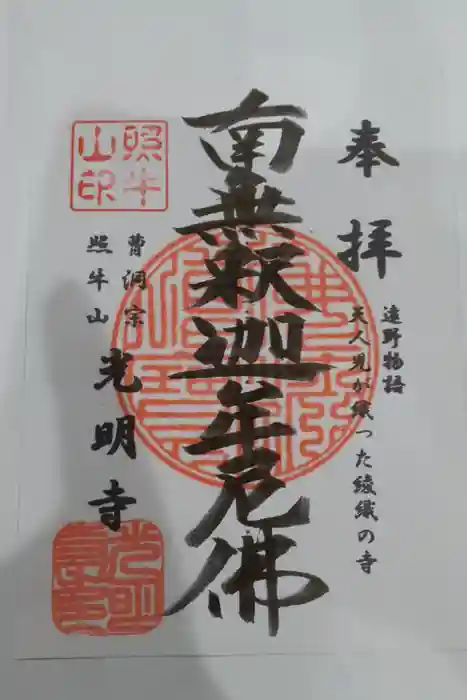 奉拝
遠野物語
天人児が織った綾織の寺
南無釈迦牟尼佛
曹洞宗
照牛山
光明寺
照牛山印